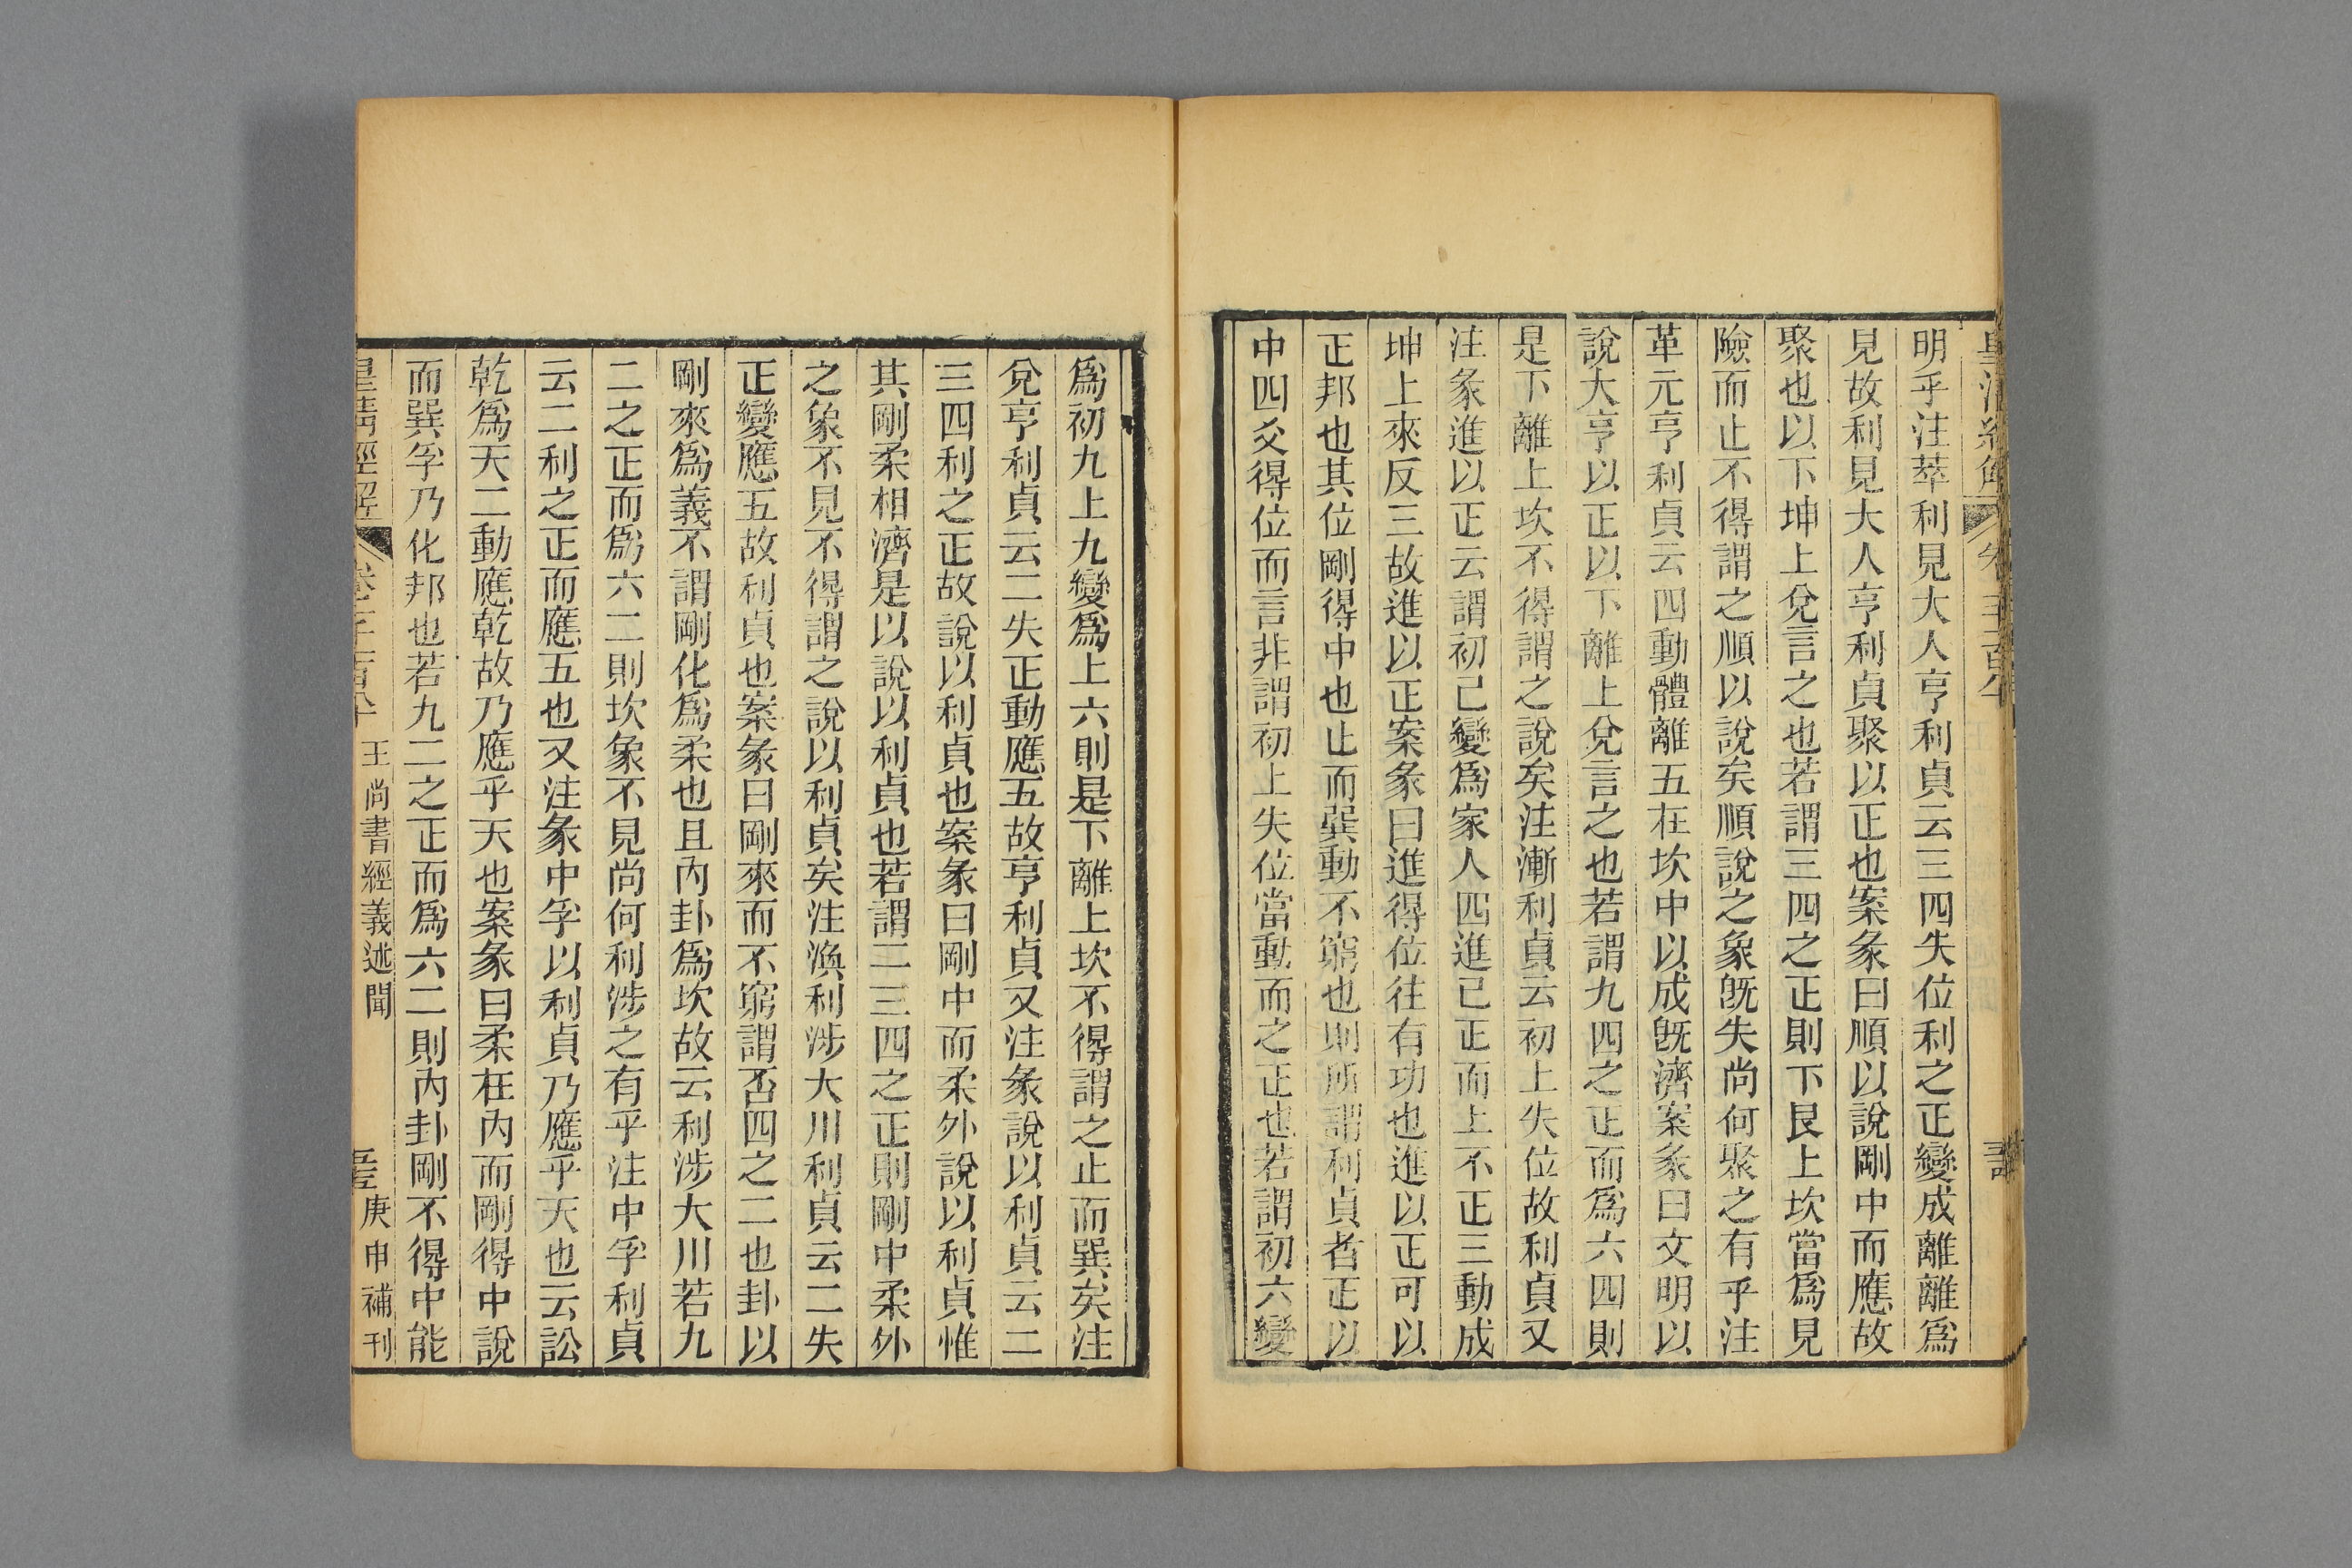 明乎注萃利見大人亨利貞云三四失位利之正變成離離爲
見故利見大人亨利貞聚以正也案彖曰順以說剛中而應故
聚也以下坤上兌言之也若謂三四之正則下艮上坎當爲見
險而止不得謂之順以說矣順說之象旣失尚何聚之有乎注
革元亨利貞云四動體離五在坎中以成旣濟案彖曰文明以
說大亨以正以下離上兌言之也若謂九四之正而爲六四則
是下離上坎不得謂之說矣注漸利貞云初上失位故利貞又
注彖進以正云謂初已變爲家人四進已正而上不正三動成
坤上來反三故進以正案彖曰進得位往有功也進以正可以
正邦也其位剛得中也止而巽動不窮也則所謂利貞者正以
中四爻得位而言非謂初上失位當動而之正也若謂初六變
爲初九上九變爲上六則是下離上坎不得謂之止而巽矣注
兌亨利貞云二失正動應五故亨利貞又注彖說以利貞云二
三四利之正故說以利貞也案彖曰剛中而柔外說以利貞惟
其剛柔相濟是以說以利貞也若謂二三四之正則剛中柔外
之象不見不得謂之說以利貞矣注渙利涉大川利貞云二失
正變應五故利貞也案彖曰剛來而不窮謂否四之二也卦以
剛來爲義不謂剛化爲柔也且內卦爲坎故云利涉大川若九
二之正而爲六二則坎象不見尚何利涉之有乎注中孚利貞
云二利之正而應五也又注彖中孚以利貞乃應乎天也云訟
乾爲天二動應乾故乃應乎天也案彖曰柔在內而剛得中說
而巽孚乃化邦也若九二之正而爲六二則內卦剛不得中能
皇清經解
王尚書經義述聞
庚申補刊